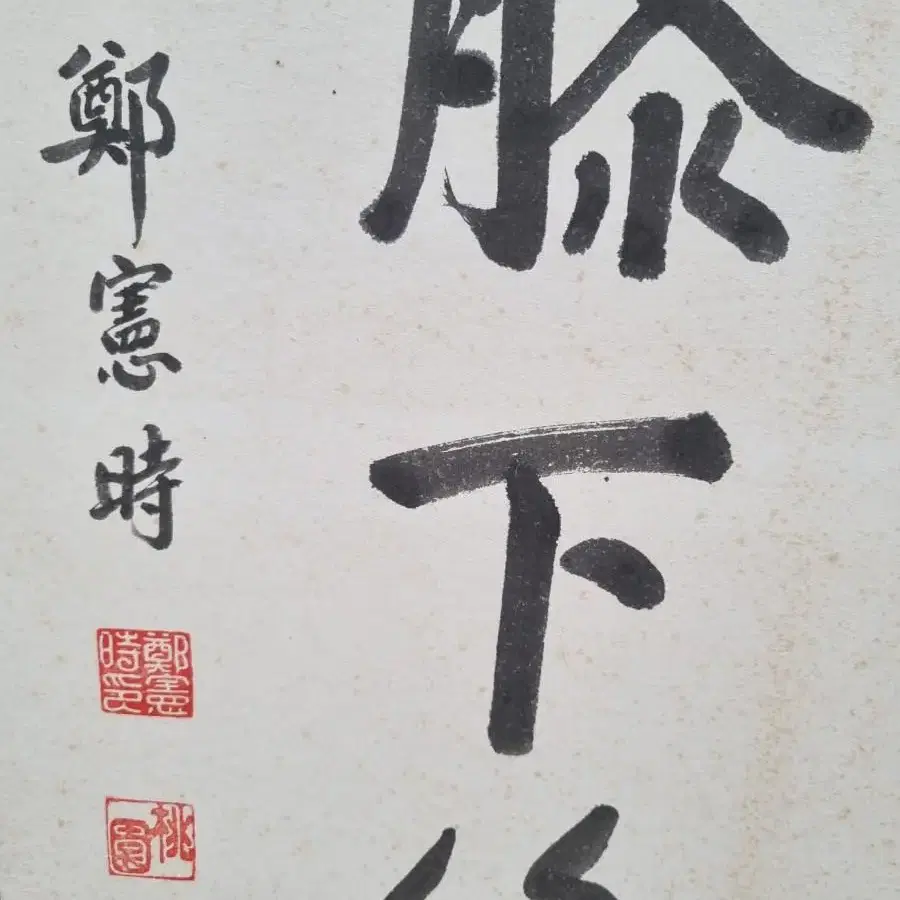 膝下
鄭憲時
鄭憲時印
桃